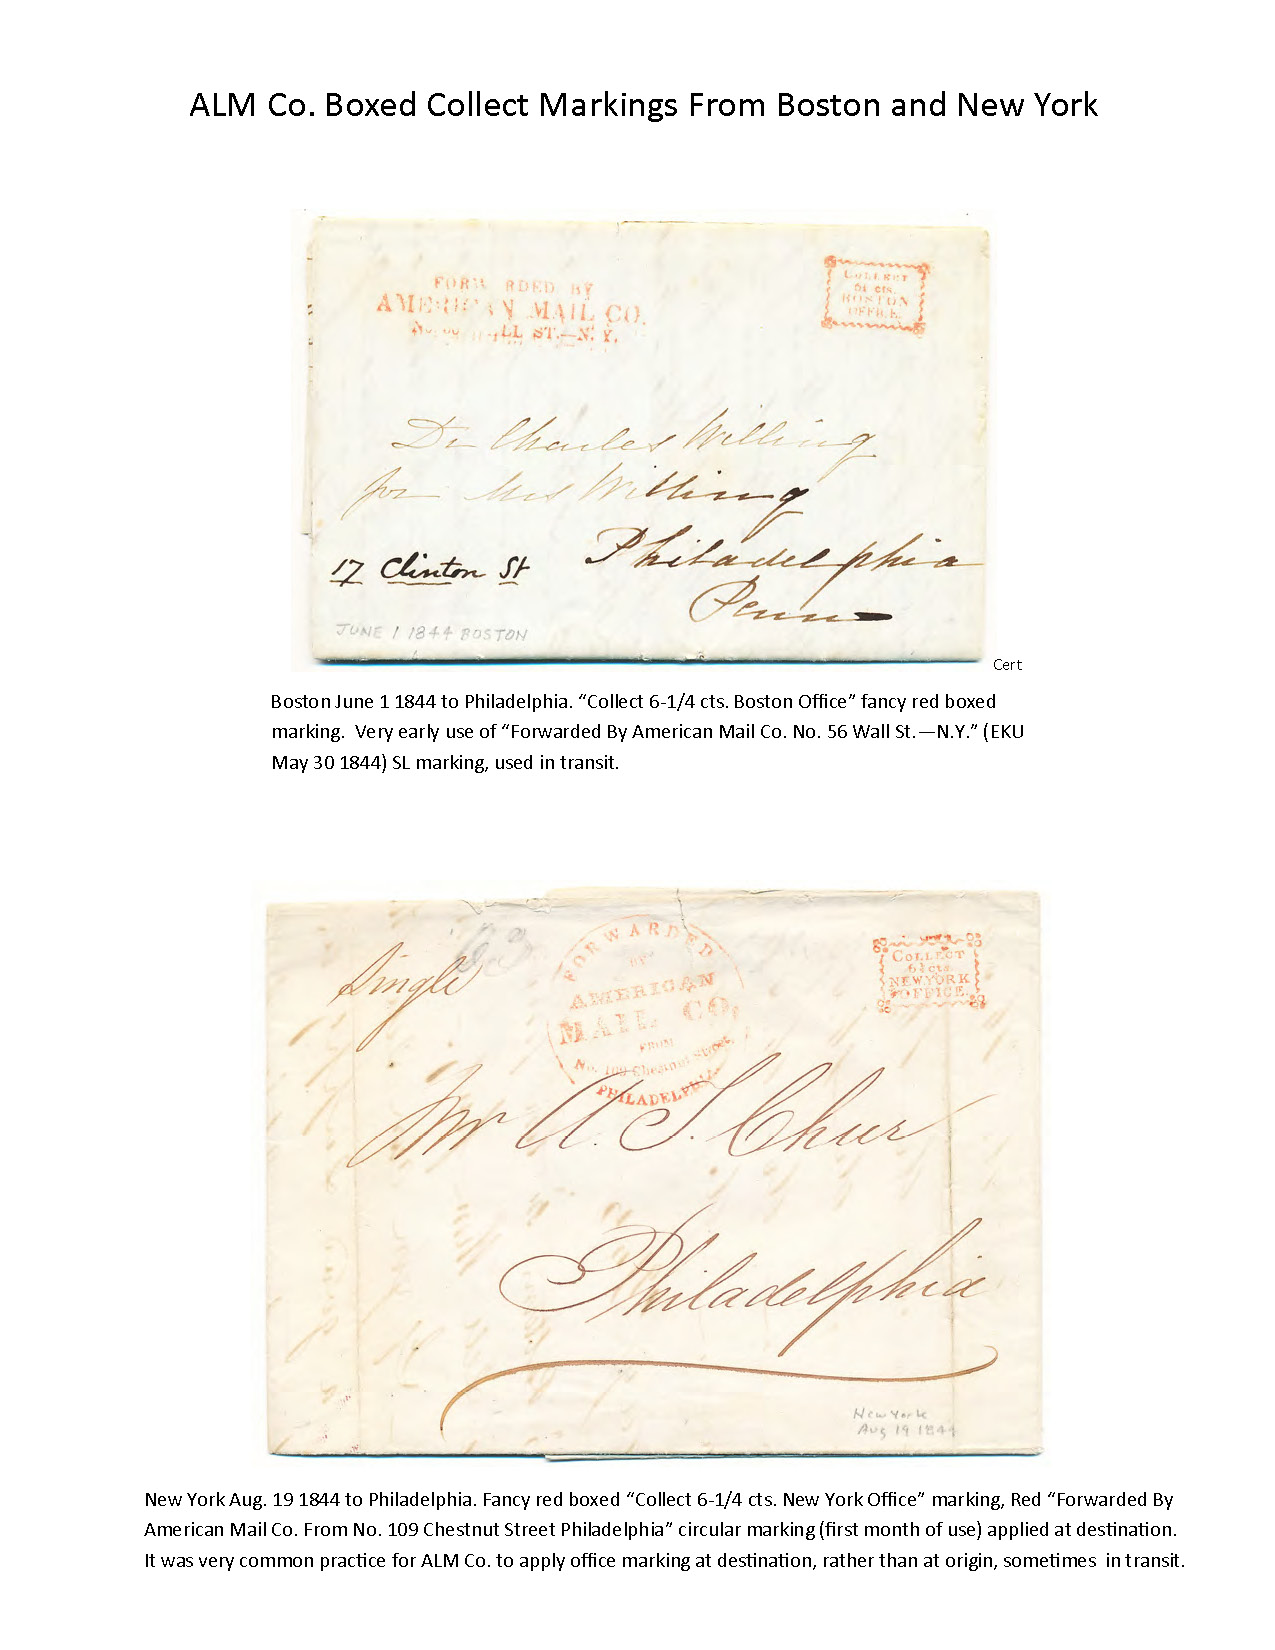 ALM Co. Boxed Collect Markings From Boston and New York
FORW RDED BY
AMERICAN MAIL CO.
LL ST.—N.Y.
COLLECT
6¼ cts.
BOSTON
OFFICE.
Dr Charles Willing
for Mrs Willing
17 Clinton St
Philadelphia
Penn
JUNE 1 1844 BOSTON
Cert
Boston June 1 1844 to Philadelphia. “Collect 6-1/4 cts. Boston Office” fancy red boxed
marking.  Very early use of “Forwarded By American Mail Co. No. 56 Wall St.—N.Y.” (EKU
May 30 1844) SL marking, used in transit.
Single
FORWARDED
BY
AMERICAN
MAIL CO.
FROM
No. 109 Chestnut Street
PHILADELPHIA
COLLECT
6¼ cts.
NEW.YORK
OFFICE.
Mr A. S. Chur
Philadelphia
New York
Aug 19 1844
New York Aug. 19 1844 to Philadelphia. Fancy red boxed “Collect 6-1/4 cts. New York Office” marking, Red “Forwarded By
American Mail Co. From No. 109 Chestnut Street Philadelphia” circular marking (first month of use) applied at destination.
It was very common practice for ALM Co. to apply office marking at destination, rather than at origin, sometimes  in transit.